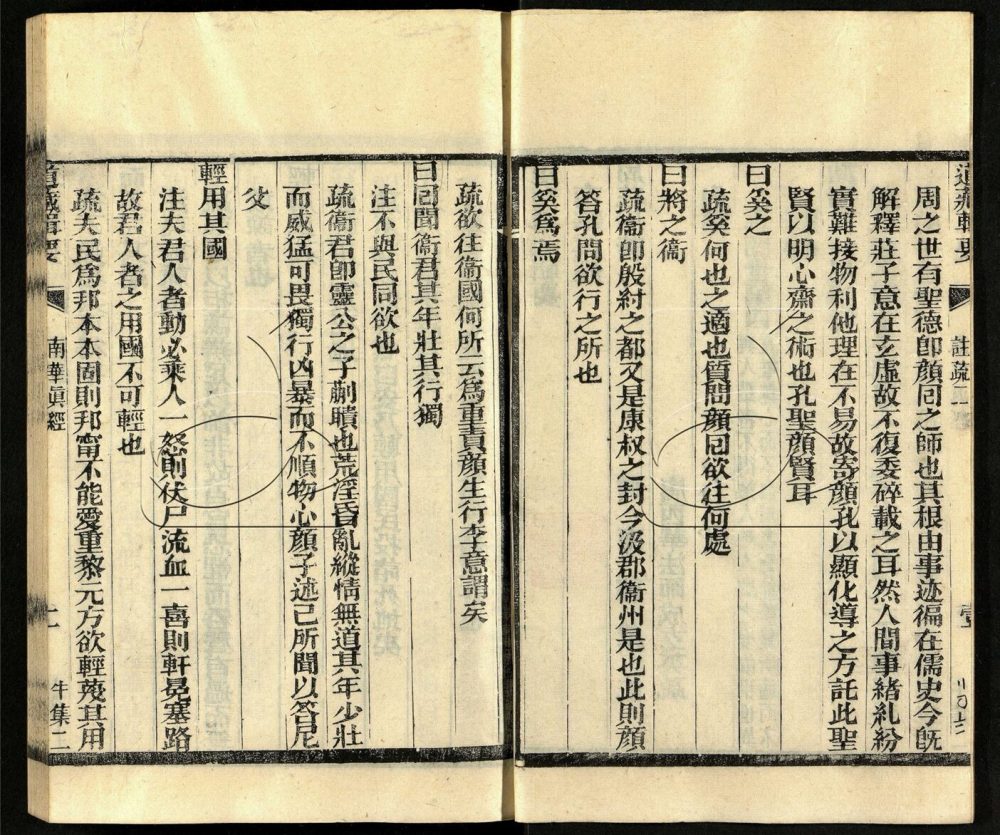 道藏輯要
註疏二
周之世有聖德卽顔囘之師也其根由事迹徧在儒史今旣
解釋莊子意在玄虛故不復委碎載之耳然人間事緒糺紛
實難接物利他理在不易故寄顔孔以顯化導之方託此聖
賢以明心齋之術也孔聖顔賢耳
曰奚之
疏奚何也之適也質問顔囘欲往何處
曰將之衞
疏衞卽殷紂之都又是康叔之封今汲郡衞州是也此則顔
答孔問欲行之所也
曰奚爲焉
疏欲往衞國何所云爲重責顔生行李意謂矣
曰囘聞衞君其年壯其行獨
注不與民同欲也
疏衞君卽靈公之子蒯聵也荒淫昏亂縱情無道其年少壯
而威猛可畏獨行凶暴而不順物心顔子述己所聞以答尼
父
輕用其國
注夫君人者動必乘人一怒則伏尸流血一喜則軒冕塞路
故君人者之用國不可輕也
疏夫民爲邦本本固則邦甯不能愛重黎元方欲輕蔑其用
道藏輯要
南華眞經
二
牛集二